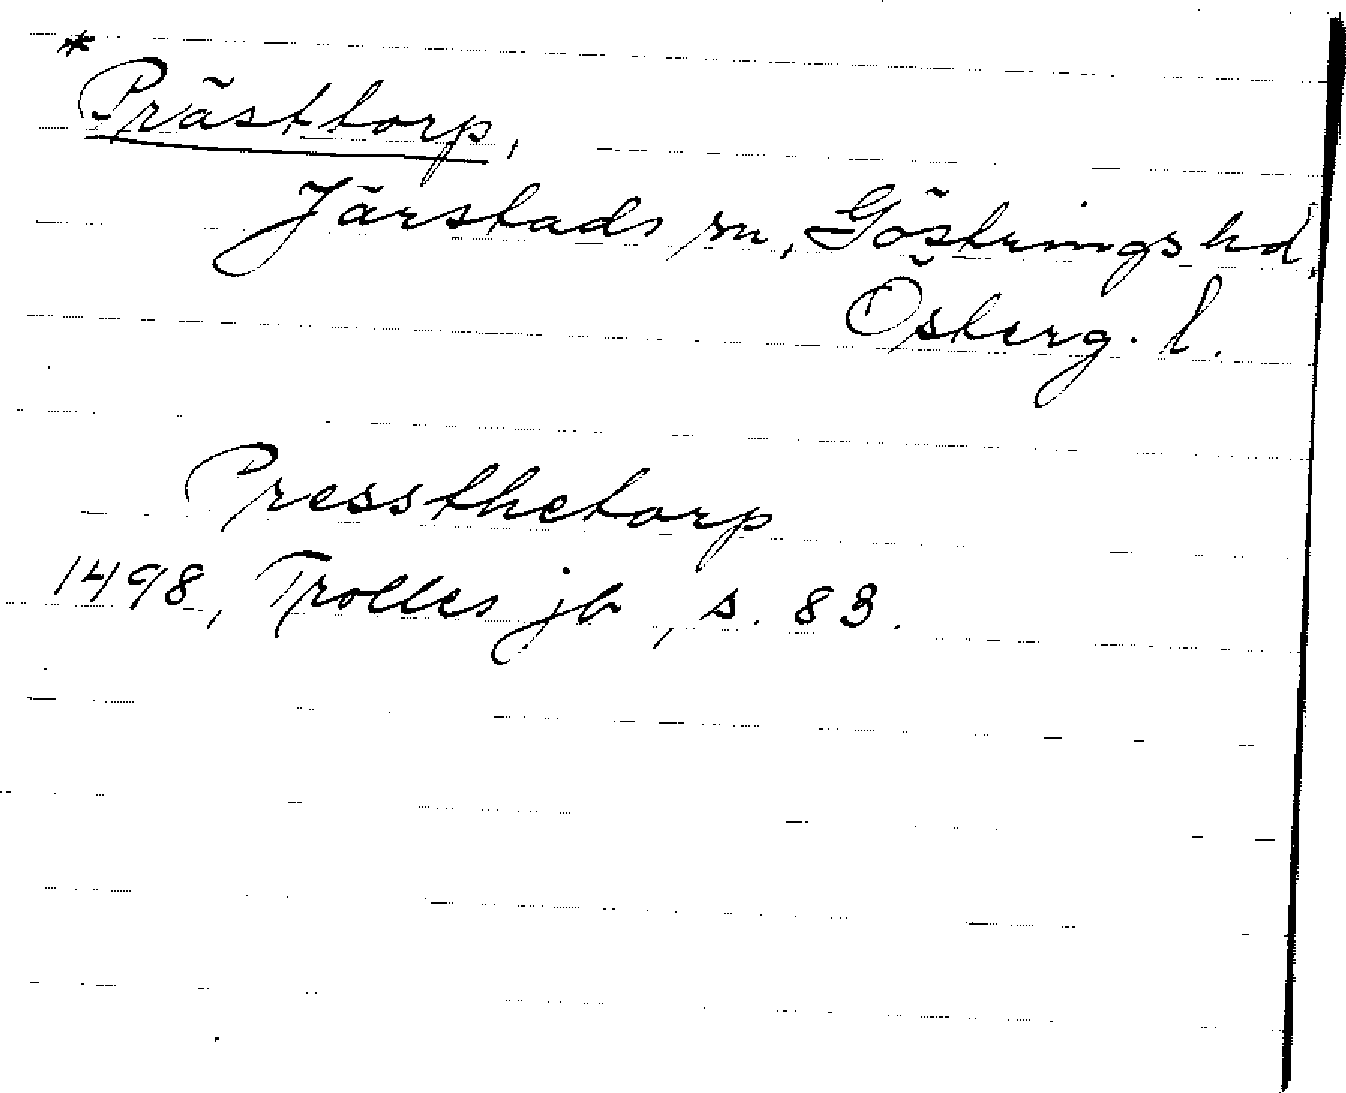 *
Prästtorp,
Järstads sn, Göstrings hd,
Österg. l.
Pressthetorp
1498, Trolles jb, s. 83.